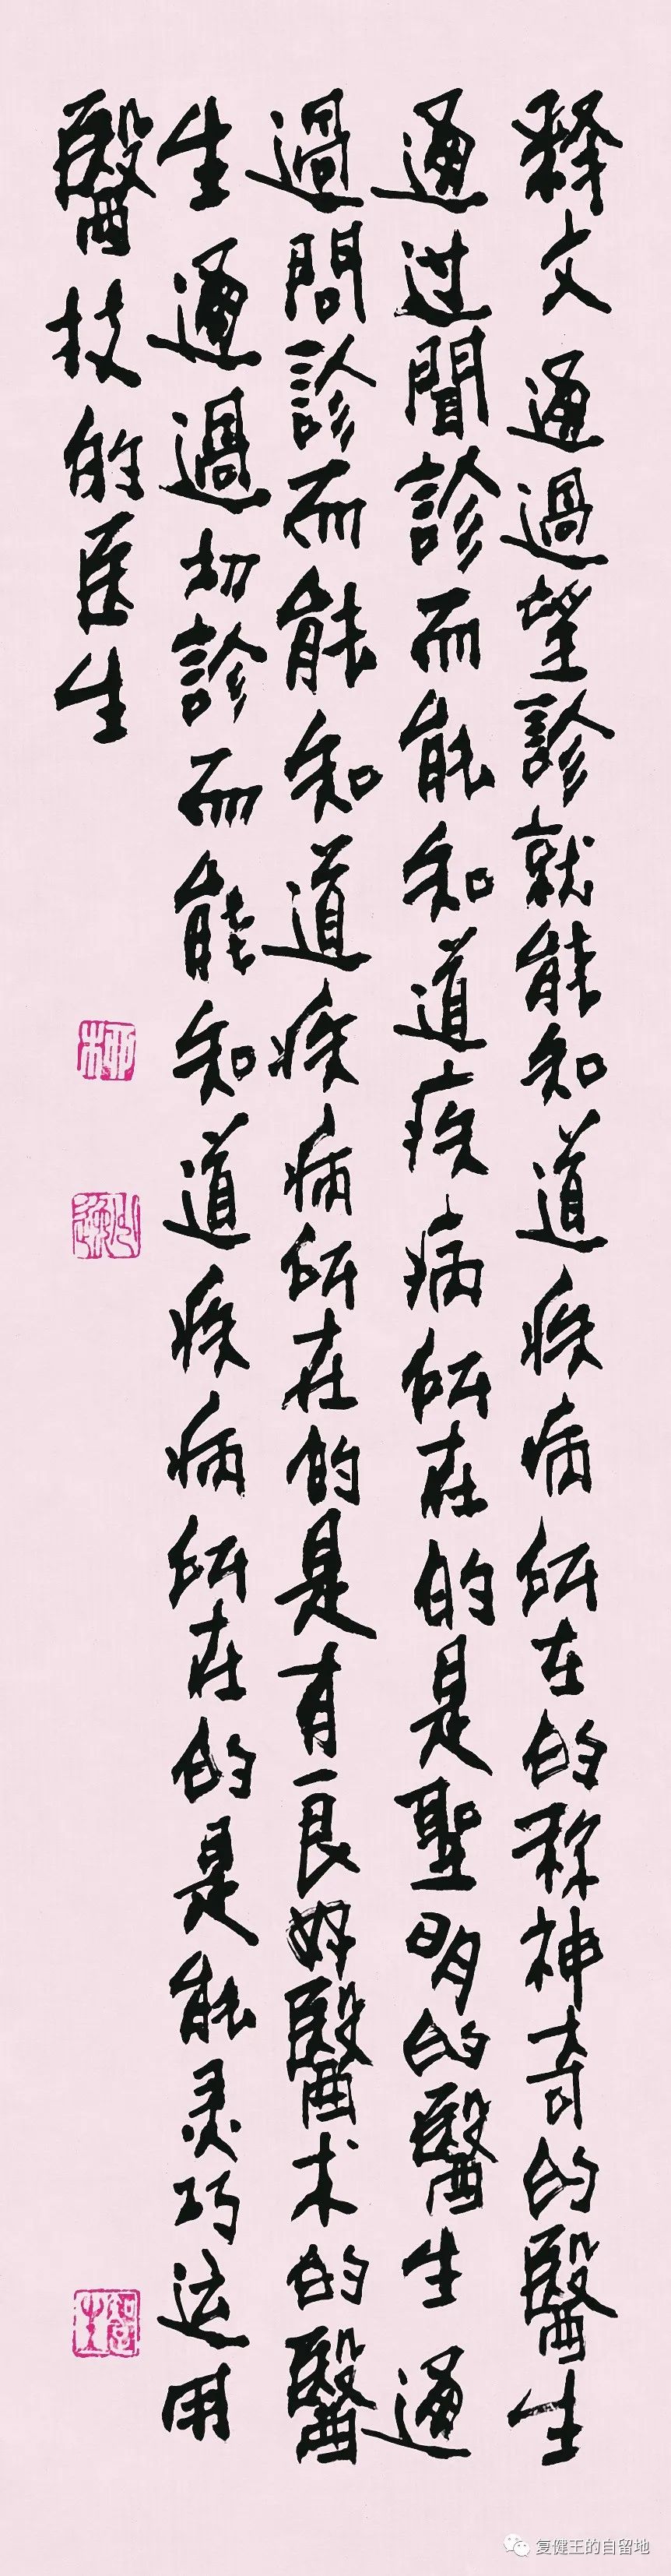 释文 通過望診就能知道疾病所在的称神奇的醫生
通过聞診而能知道疾病所在的是聖明的醫生 通
過問診而能知道疾病所在的是有良好醫术的醫
生 通過切診而能知道疾病所在的是能灵巧运用
醫技的医生
复健王的自留地